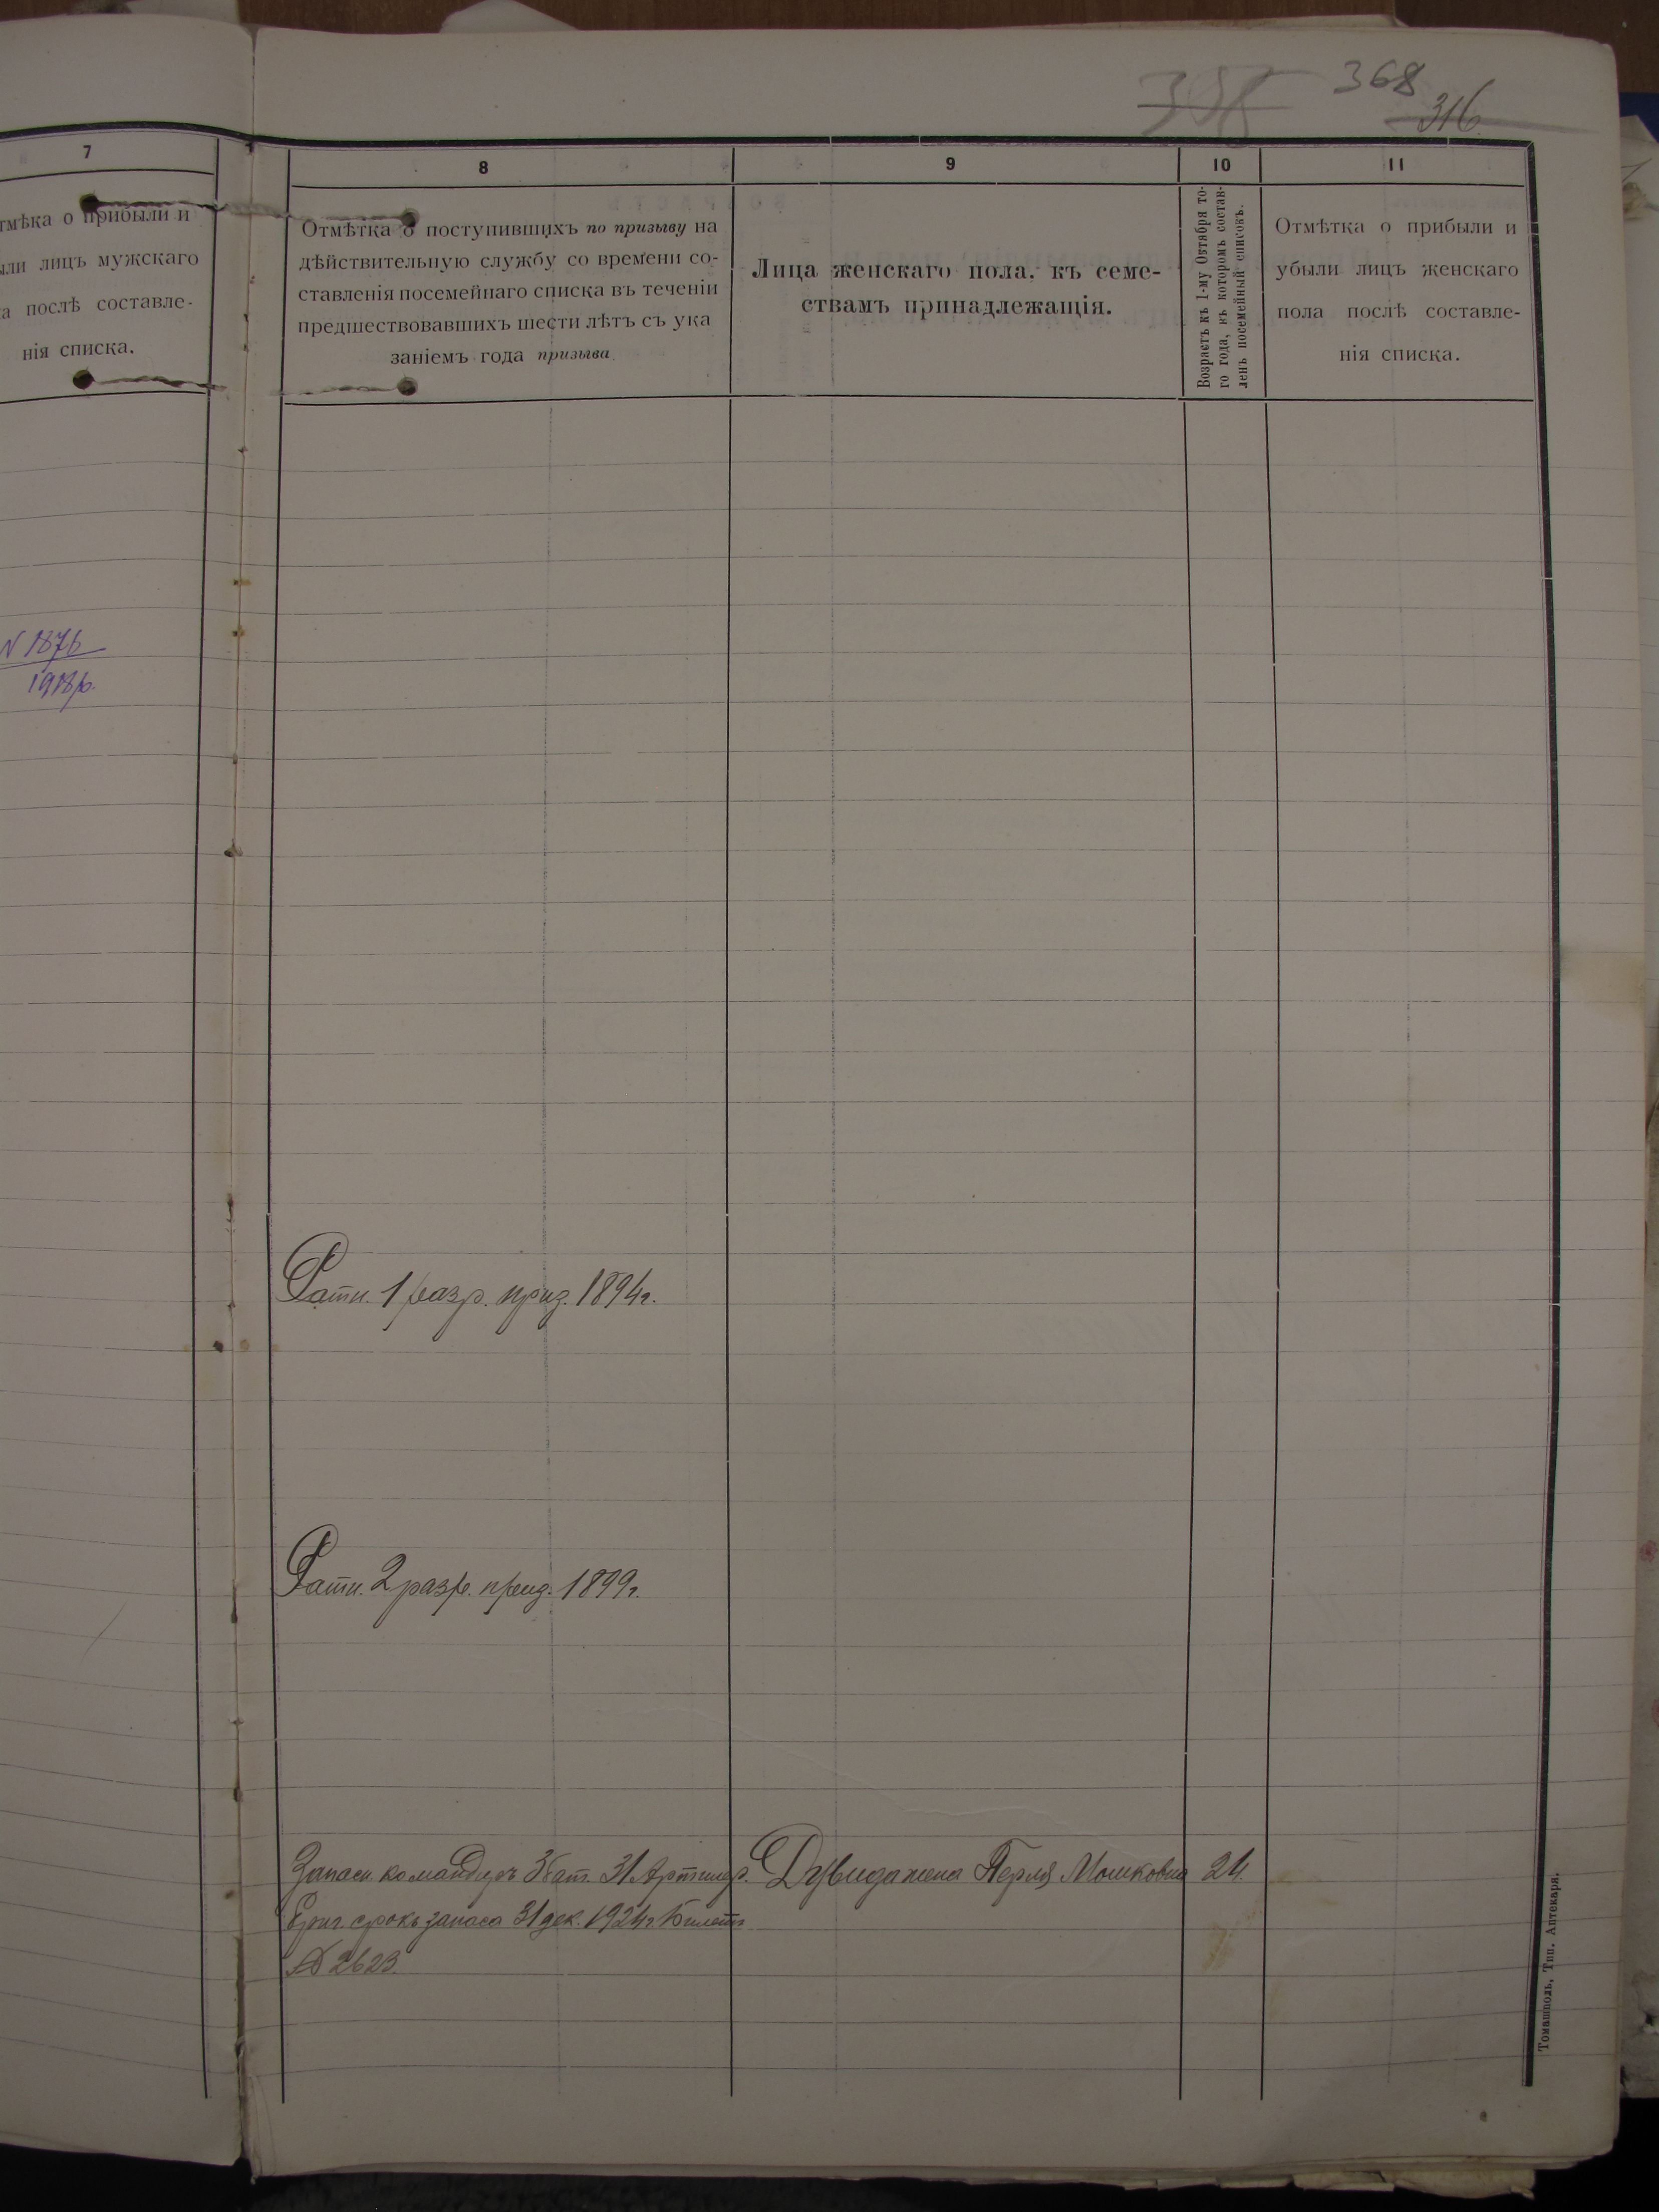 368
316
7
8
9
10
11
тмѣка о прибыли и
ыли лицъ мужскаго
а послѣ составле-
нія списка.
Отмѣтка о поступившихъ по призыву на
дѣйствительную службу со времени со-
ставленія посемейнаго списка въ теченіи
предшествовавшихъ шести лѣтъ съ ука
заніемъ года призыва
Лица женскаго пола. къ семе-
ствамъ принадлежащія.
Возрастъ къ 1-му Октября то-
го года, въ которомъ состав-
ленъ посемейный списокъ.
Отмѣтка о прибыли и
убыли лицъ женскаго
пола послѣ составле-
нія списка.
N 1876
1918р.
Ратн. 1 разр. приз. 1894г.
Ратн. 2 разр. приз. 1899г.
Запасн. 3 бат. 31 Артилер. Дувида жена Перля Мошковна 24.
Бриг. срокъ запаса 31 дек. 1924г. билетъ
№ 2623.
Томашполь, Тип. Аптекаря.